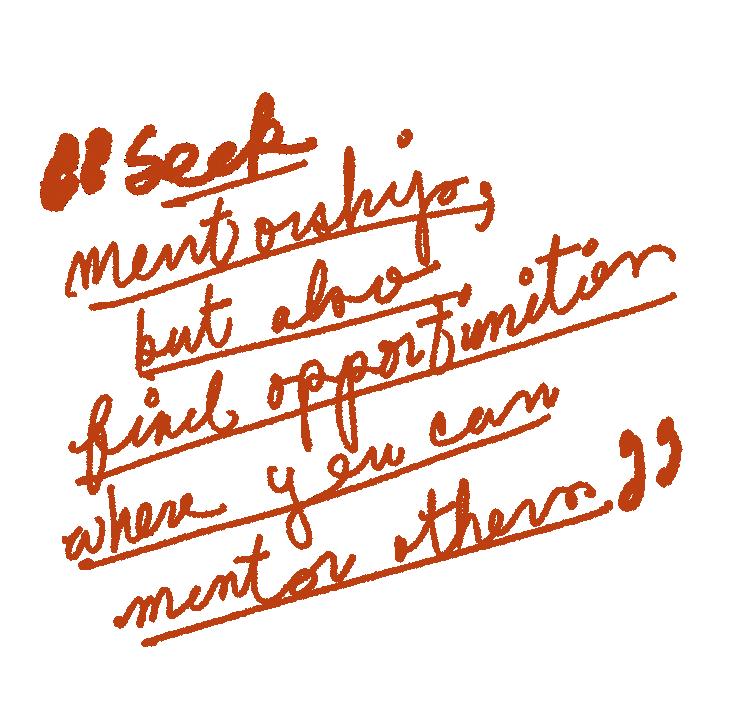 “Seek
mentorship,
but also
find opportunities
where you can
mentor others.”